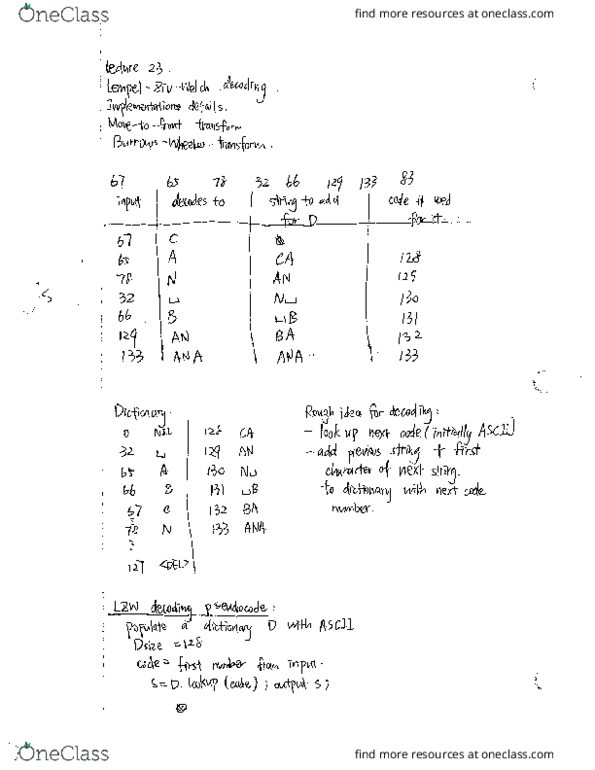 OneClass
find more resources at oneclass.com
Lecture 23.
Lempel-Ziv-Welch decoding.
Implementations details.
Move-to-front transform
Burrows-Wheeler transform.
67 65 78 32 66 129 133 83
input decodes to string to add for D code it used for it
67 C
65 A CA 128
78 N AN 129
32 ␣ N␣ 130
66 B ␣B 131
129 AN BA 132
133 ANA ANA 133
Dictionary.
0 NUL 128 CA
32 ␣ 129 AN
65 A 130 N␣
66 B 131 ␣B
67 C 132 BA
78 N 133 ANA
127 <DEL>
Rough idea for decoding:
- look up next code (initially ASCII)
- add previous string + first
character of next string.
to dictionary with next code
number.
LZW decoding pseudocode:
populate a dictionary D with ASCII
Dsize = 128
code = first number from input.
S = D.lookup(code); output S;
OneClass
find more resources at oneclass.com